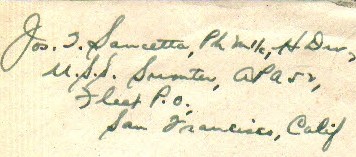 Jos. T. Sancetta, Ph M1/c, H Div,
U.S.S. Sumter, APA 52,
Fleet P.O.,
San Francisco, Calif